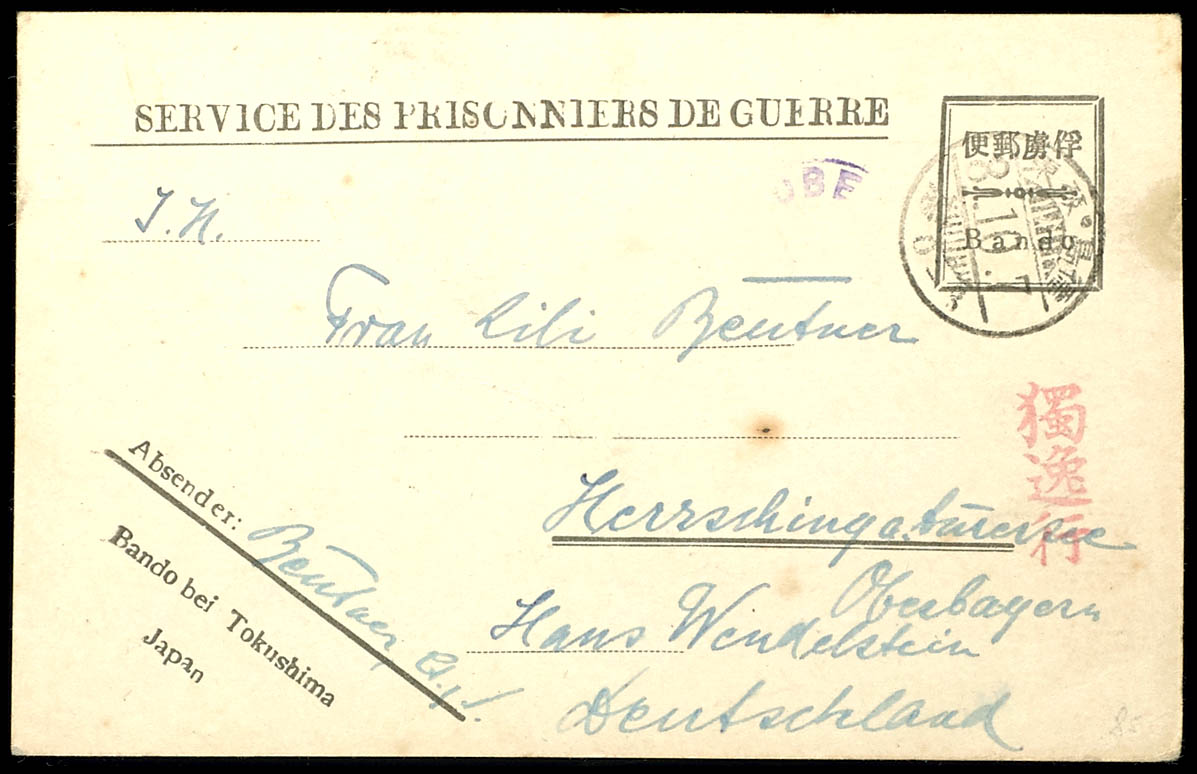 SERVICE DES PRISONNIERS DE GUERRE
便郵虜俘
Bando
OBE
I. H.
Frau Lili Beutner
獨逸行
Herrsching a. Ammersee
Oberbayern
Haus Wendelstein
Deutschland
Absender: Beutner
Bando bei Tokushima
Japan